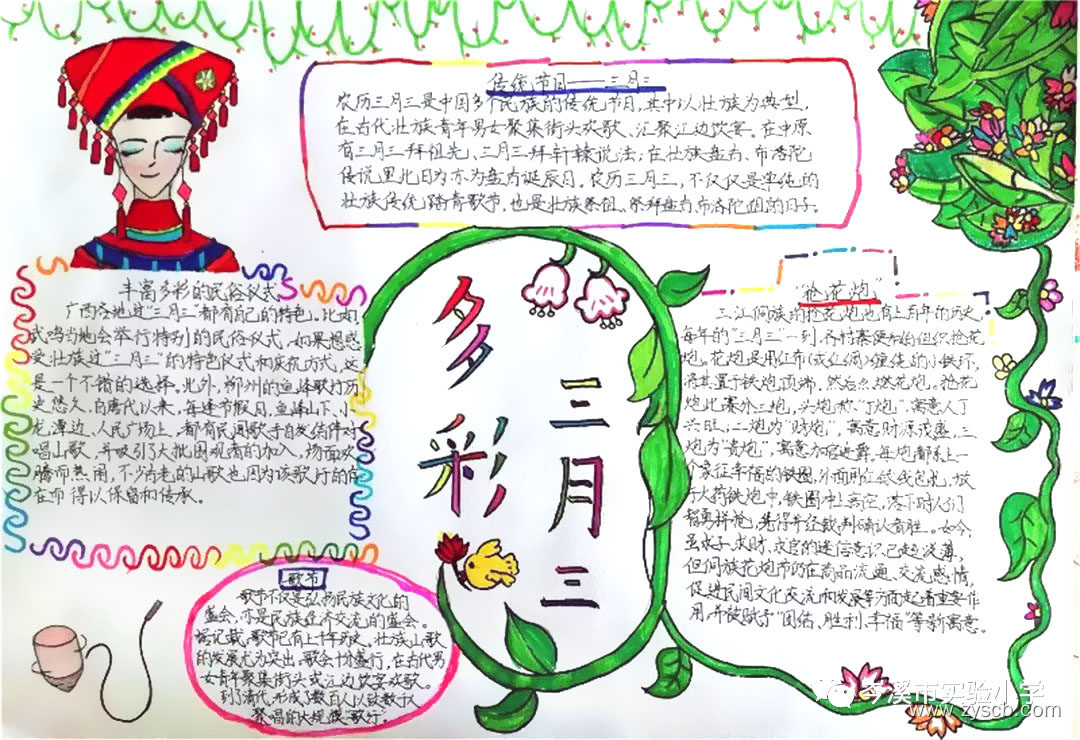 传统节日——三月三
农历三月三是中国多个民族的传统节日,其中以壮族为典型,
在古代壮族青年男女聚集街头欢歌、汇聚江边饮宴。在中原
有三月三拜祖先、三月三拜轩辕说法;在壮族盘古、布洛陀
传说里此日为亦为盘古诞辰日。农历三月三,不仅仅是单纯的
壮族传统踏青歌节,也是壮族祭祖、祭拜盘古、布洛陀祖的日子。
丰富多彩的民俗仪式
广西各地过“三月三”都有自己的特色。比如
武鸣当地会举行特别的民俗仪式,如果想感
受壮族过“三月三”的特色仪式和庆祝方式,这
是一个不错的选择。此外,柳州的鱼峰歌圩历
史悠久,自唐代以来,每逢节假日,鱼峰山下、小
龙潭边、人民广场上,都有民间歌手自发结伴对
唱山歌,并吸引了大批围观者的加入,场面欢
腾而热闹,不少古老的山歌也因为该歌圩的存
在而得以保留和传承。
多彩
三月三
“抢花炮”
三江侗族的抢花炮也有上百年的历史,
每年的“三月三”一到,各村寨便纷纷组织抢花
炮。花炮是用红布(或红绸)缠绕的小铁环,
将其置于铁炮顶端,然后点燃花炮。抢花
炮比赛分三炮,头炮称“丁炮”,寓意人丁
兴旺,二炮为“财炮”,寓意财源茂盛,三
炮为“贵炮”,寓意加官进爵,每炮都系上一
个象征幸福的铁圈,外面用红绿线包扎,放
于火药铁炮中,铁圈冲上高空,落下时人们
奋勇拼抢,先得并经裁判确认者胜。如今,
虽求子、求财、求官的迷信意识已趋浅薄,
但侗族花炮节仍在商品流通、交流感情,
促进民间文化交流和发展等方面起着重要作
用,并被赋予“团结、胜利、幸福”等新寓意。
歌节
歌节不仅是弘扬民族文化的
盛会,亦是民族经济交流的盛会。
据记载,歌节已有上千年历史。壮族山歌
的发展尤为突出,歌会十分盛行,在古代男
女青年聚集街头或江边饮宴欢歌。
到清代,形成了数百人以致数千人
聚唱的大规模“歌圩”。
岑溪市实验小学
www.zyscb.com